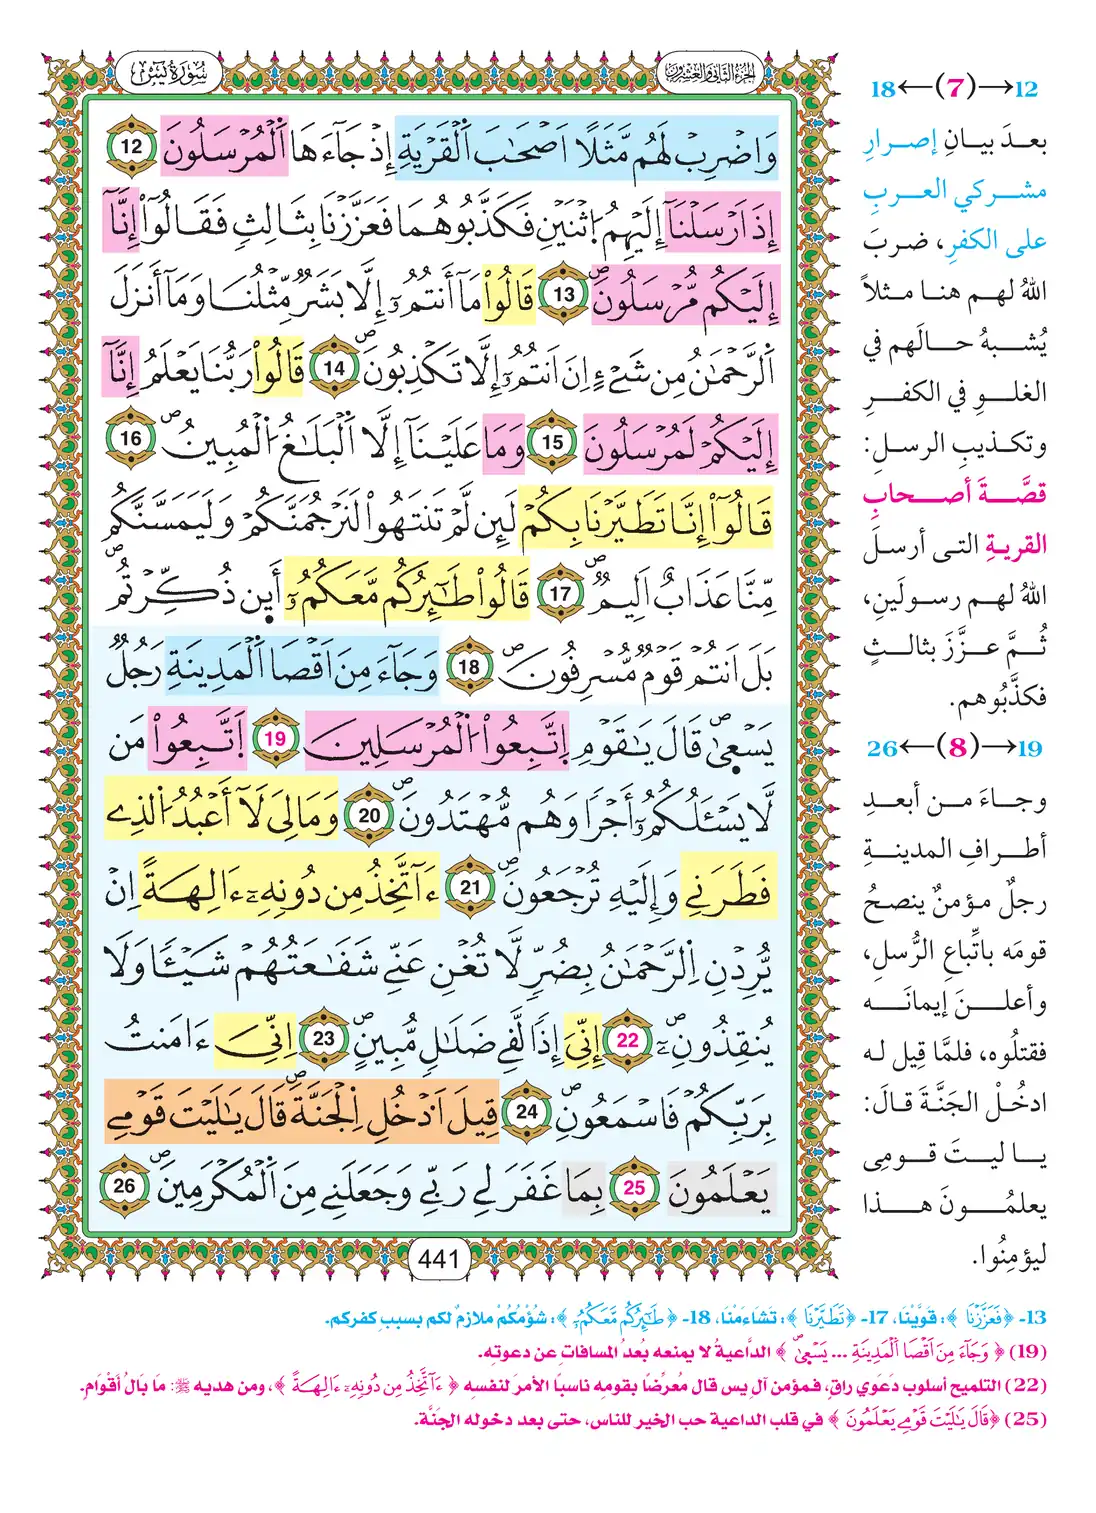 سُورَةُ يسٓ
الجزء الثاني والعشرون
وَاضْرِبْ لَهُم مَّثَلًا اَصْحَٰبَ اَلْقَرْيَةِ إِذْ جَآءَهَا اَلْمُرْسَلُونَ 12
إِذَ اَرْسَلْنَآ إِلَيْهِمُ اُثْنَيْنِ فَكَذَّبُوهُمَا فَعَزَّزْنَا بِثَالِثٖ فَقَالُوٓاْ إِنَّآ
إِلَيْكُم مُّرْسَلُونَۖ 13 قَالُواْ مَآ أَنتُمُۥٓ إِلَّا بَشَرٞ مِّثْلُنَا وَمَآ أَنزَلَ
اَلرَّحْمَٰنُ مِن شَےْءٍ اِنَ اَنتُمُۥٓ إِلَّا تَكْذِبُونَۖ 14 قَالُواْ رَبُّنَا يَعْلَمُ إِنَّآ
إِلَيْكُمْ لَمُرْسَلُونَ 15 وَمَا عَلَيْنَآ إِلَّا اَلْبَلَٰغُ اُلْمُبِينُۖ 16
قَالُوٓاْ إِنَّا تَطَيَّرْنَا بِكُمْ لَئِن لَّمْ تَنتَهُواْ لَنَرْجُمَنَّكُمْ وَلَيَمَسَّنَّكُم
مِّنَّا عَذَابٌ اَلِيمٞۖ 17 قَالُواْ طَٰٓئِرُكُم مَّعَكُمُۥٓ أَئِن ذُكِّرْتُمۖ
بَلَ اَنتُمْ قَوْمٞ مُّسْرِفُونَۖ 18 وَجَآءَ مِنَ اَقْصَا اَلْمَدِينَةِ رَجُلٞ
يَسْعَىٰۖ قَالَ يَٰقَوْمِ اِتَّبِعُواْ اُلْمُرْسَلِينَ 19 اَتَّبِعُواْ مَن
لَّا يَسْـَٔلُكُمُۥٓ أَجْرٗا وَهُم مُّهْتَدُونَۖ 20 وَمَا لِىَ لَآ أَعْبُدُ اُلذِے
فَطَرَنِے وَإِلَيْهِ تُرْجَعُونَۖ 21 ءَآتَّخِذُ مِن دُونِهِۦٓ ءَالِهَةً اِنْ
يُّرِدْنِ اِلرَّحْمَٰنُ بِضُرّٖ لَّا تُغْنِ عَنِّے شَفَٰعَتُهُمْ شَيْـٔٗا وَلَا
يُنقِذُونِۦٓۖ 22 إِنِّىَ إِذٗا لَّفِے ضَلَٰلٖ مُّبِينٍۖ 23 اِنِّىَ ءَامَنتُ
بِرَبِّكُمْ فَاسْمَعُونِۖ 24 قِيلَ اَدْخُلِ اِلْجَنَّةَۖ قَالَ يَٰلَيْتَ قَوْمِے
يَعْلَمُونَ 25 بِمَا غَفَرَ لِے رَبِّے وَجَعَلَنِے مِنَ اَلْمُكْرَمِينَۖ 26
441
12→(7)←18
بعدَ بيانِ إصرارِ
مشركي العربِ
على الكفرِ، ضربَ
اللهُ لهم هنا مثلاً
يُشبهُ حالَهم في
الغلوِ في الكفرِ
وتكذيبِ الرسلِ:
قصَّةَ أصحابِ
القريةِ التى أرسلَ
اللهُ لهم رسولَينِ،
ثُمَّ عزَّزَ بثالثٍ
فكذَّبُوهم.
19→(8)←26
وجاءَ من أبعدِ
أطرافِ المدينةِ
رجلٌ مؤمنٌ ينصحُ
قومَه باتِّباعِ الرُّسلِ،
وأعلنَ إيمانَه
فقتلُوه، فلمَّا قِيل له
ادخُلْ الجَنَّةَ قالَ:
يا ليتَ قومِى
يعلمُونَ هذا
ليؤمِنُوا.
13- ﴿فَعَزَّزْنَا﴾: قَوَّيْنَا، 17- ﴿تَطَيَّرْنَا﴾: تَشَاءَمْنَا، 18- ﴿طَٰٓئِرُكُم مَّعَكُمُۥٓ﴾: شُؤْمُكُمْ ملازمٌ لكم بسببِ كفركم.
(19) ﴿وَجَآءَ مِنَ اَقْصَا اَلْمَدِينَةِ ... يَسْعَىٰۖ﴾ الدَّاعيةُ لا يمنعه بُعدُ المسافاتِ عن دعوتِه.
(22) التلميح أسلوب دَعَوي راقٍ، فمؤمن آل يس قال مُعرِّضًا بقومِه ناسبًا الأمرَ لنفسِه ﴿ءَآتَّخِذُ مِن دُونِهِۦٓ ءَالِهَةً﴾، ومن هديه ﷺ: مَا بَالُ أَقْوَامٍ.
(25) ﴿قَالَ يَٰلَيْتَ قَوْمِے يَعْلَمُونَ﴾ في قلب الداعية حب الخير للناس، حتى بعد دخوله الجَنَّة.